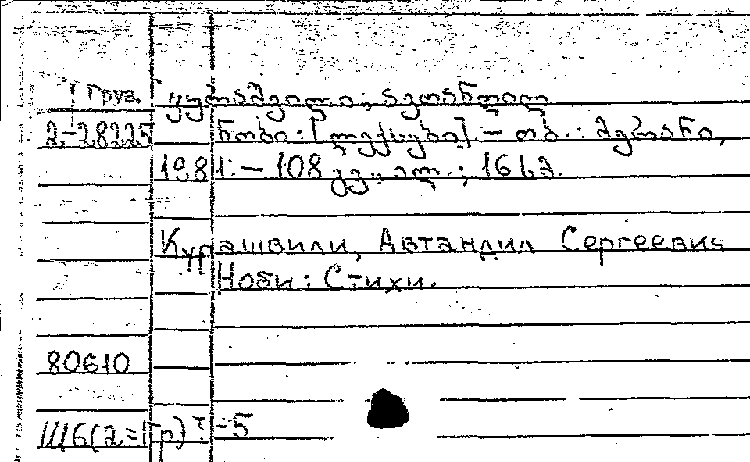 Груз. ყურაშვილი, ავთანდილ
2-28225 ნობი: [ლექსები]. – თბ.: მერანი,
1981. – 108 გვ.; 16 სმ.
Курашвили, Автандил Сергеевич
Ноби: Стихи.
80610
Ш6(2=Гр)7-5